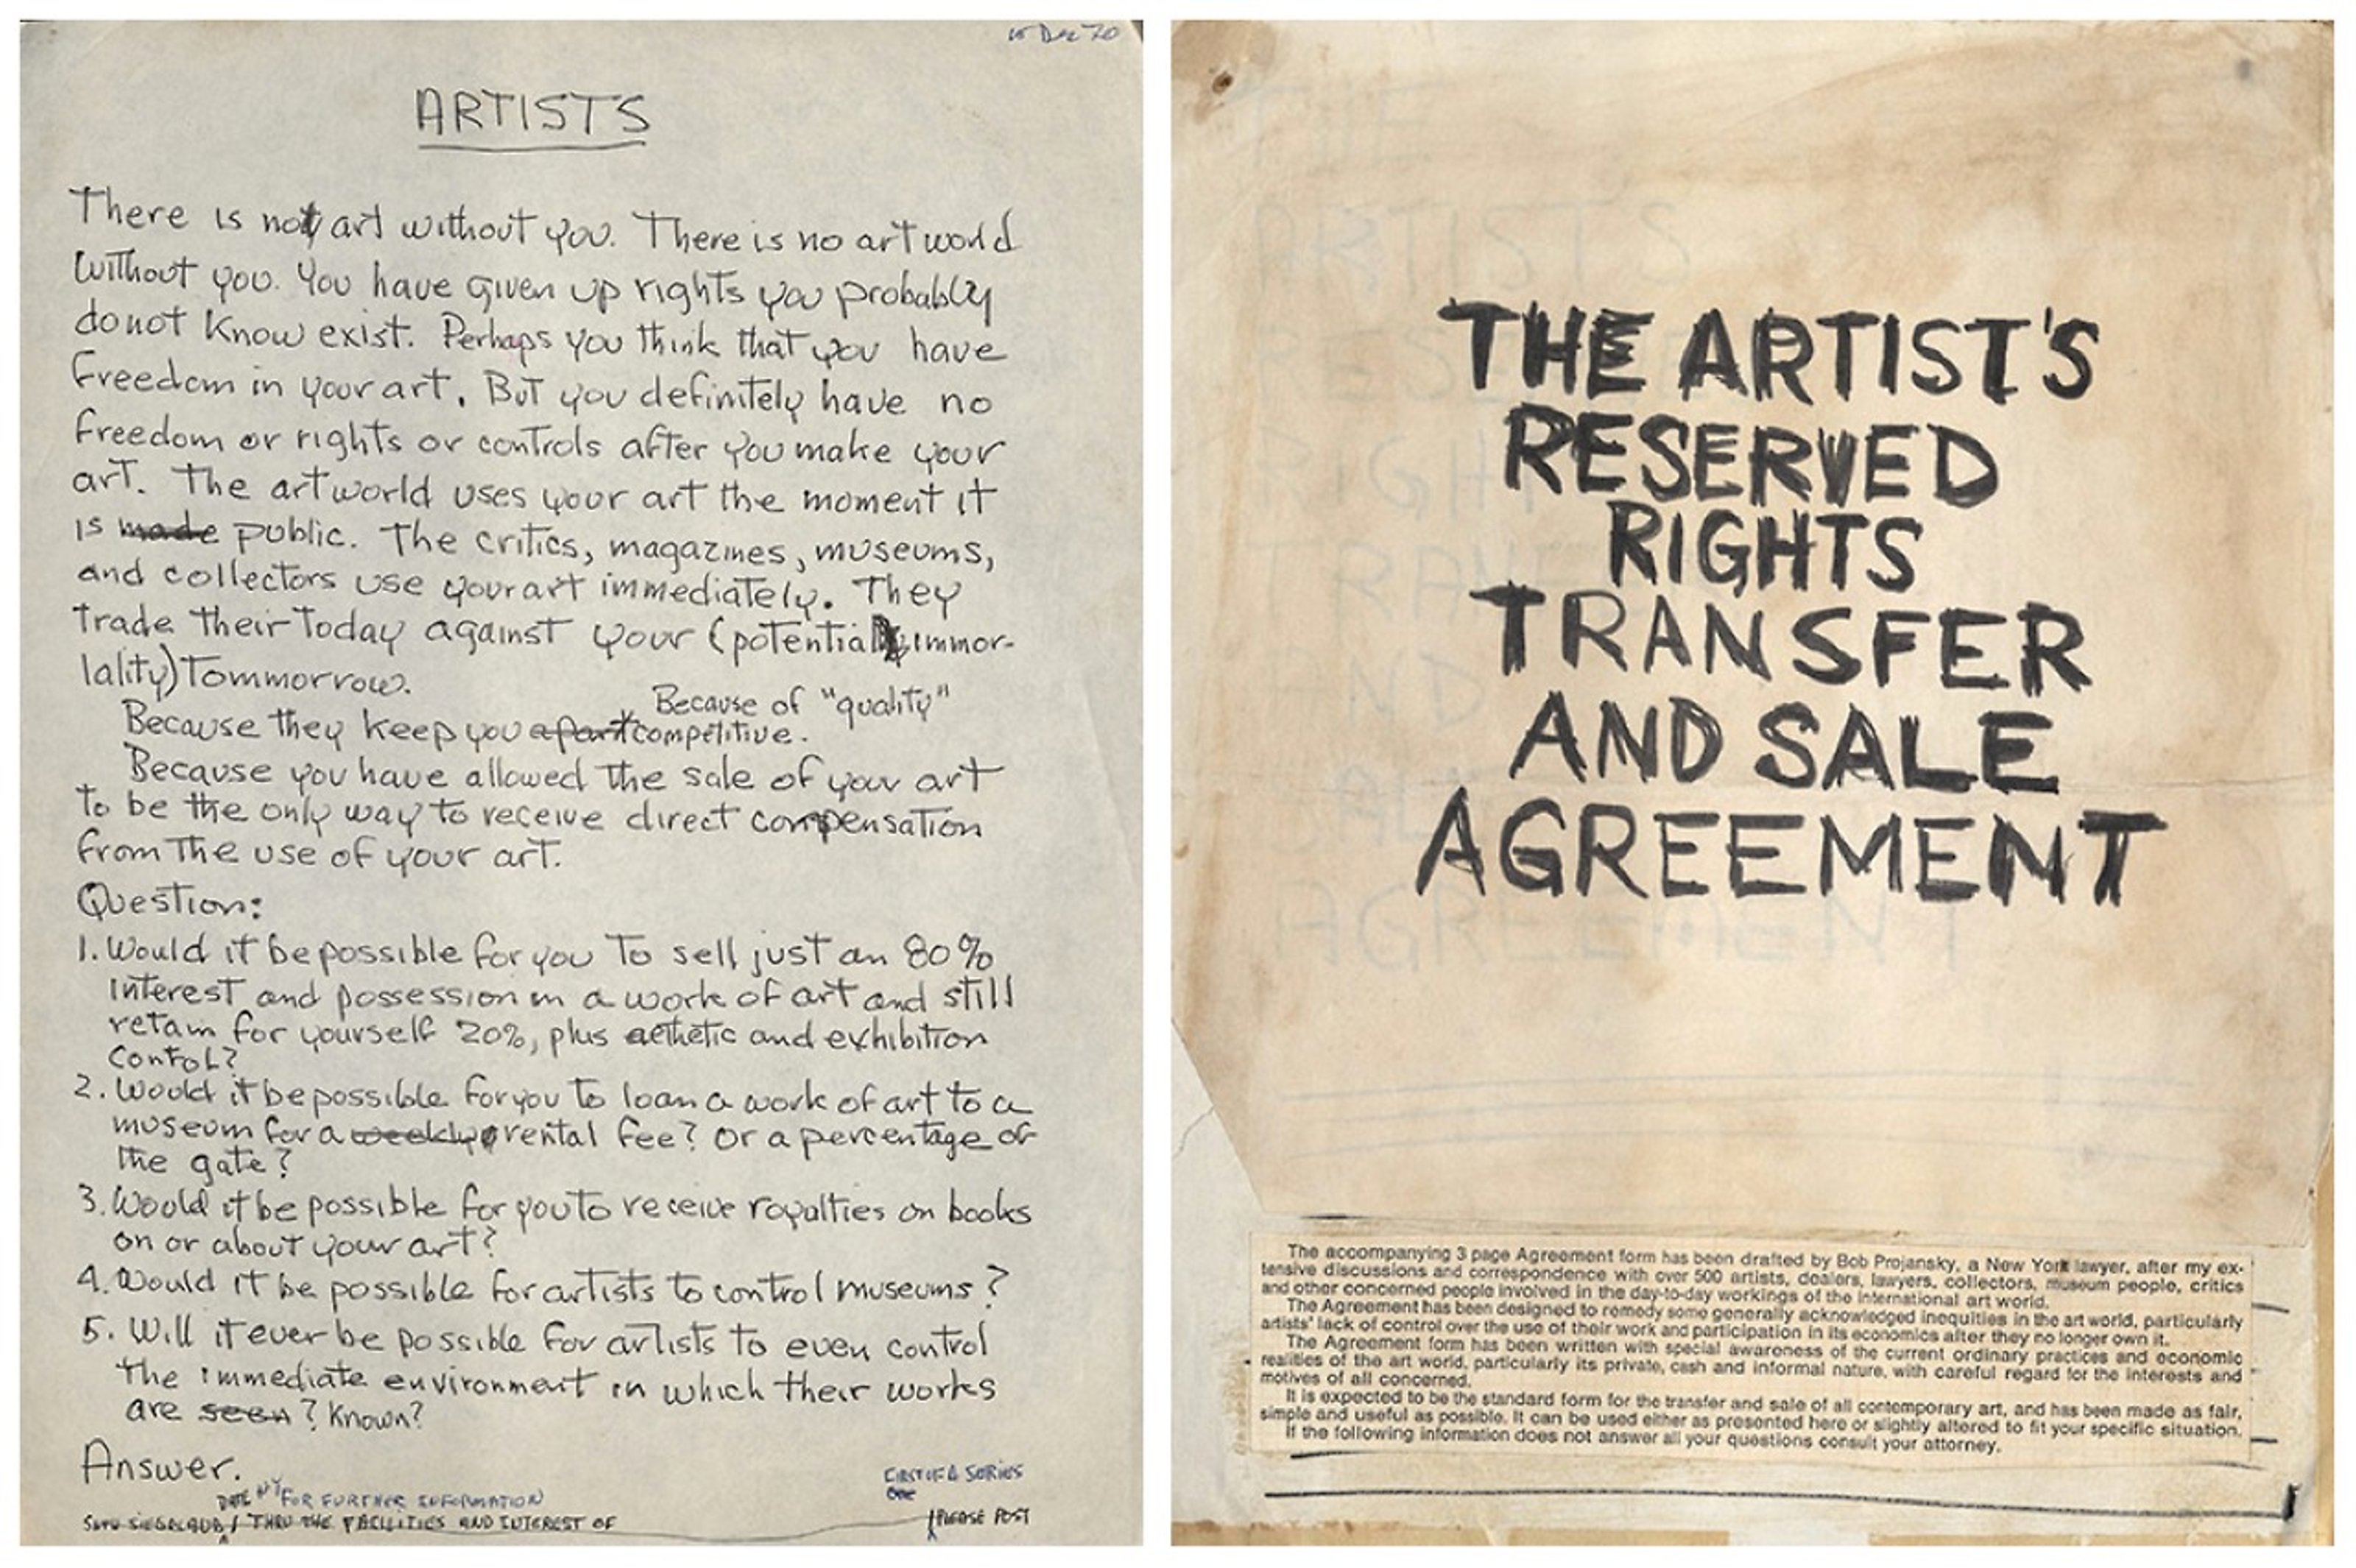 15 Dec 70
ARTISTS
There is not art without you. There is no art world
without you. You have given up rights you probably
do not know exist. Perhaps you think that you have
freedom in your art. But you definitely have no
freedom or rights or controls after you make your
art. The artworld uses your art the moment it
is made public. The critics, magazines, museums,
and collectors use your art immediately. They
trade their Today against your (potential immor-
lality) Tommorrow.
Because of "quality"
Because they keep you apart competitive.
Because you have allowed the sale of your art
to be the only way to receive direct compensation
from the use of your art.
Question:
1. Would it be possible for you to sell just an 80%
interest and possession in a work of art and still
retain for yourself 20%, plus aethetic and exhibition
control?
2. Would it be possible for you to loan a work of art to a
museum for a weekly rental fee? Or a percentage of
the gate?
3. Would it be possible for you to receive royalties on books
on or about your art?
4. Would it be possible for artists to control museums?
5. Will it ever be possible for artists to even control
the immediate environment in which their works
are seen? Known?
Answer.
FIRST OF A SERIES
DATE NY FOR FURTHER INFORMATION
Seth Siegelaub / THRU THE FACILITIES AND INTEREST OF
PLEASE POST
THE ARTIST'S
RESERVED
RIGHTS
TRANSFER
AND SALE
AGREEMENT
The accompanying 3 page Agreement form has been drafted by Bob Projansky, a New York lawyer, after my ex-
tensive discussions and correspondence with over 500 artists, dealers, lawyers, collectors, museum people, critics
and other concerned people involved in the day-to-day workings of the international art world.
The Agreement has been designed to remedy some generally acknowledged inequities in the art world, particularly
artists' lack of control over the use of their work and participation in its economics after they no longer own it.
The Agreement form has been written with special awareness of the current ordinary practices and economic
realities of the art world, particularly its private, cash and informal nature, with careful regard for the interests and
motives of all concerned.
It is expected to be the standard form for the transfer and sale of all contemporary art, and has been made as fair,
simple and useful as possible. It can be used either as presented here or slightly altered to fit your specific situation.
If the following information does not answer all your questions consult your attorney.